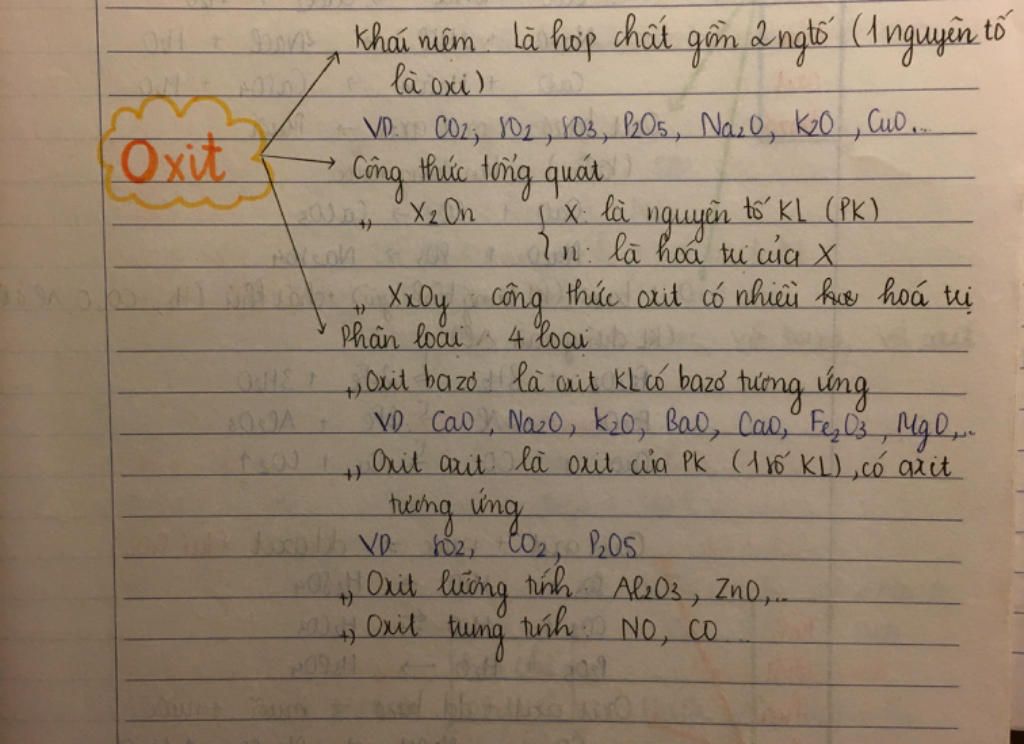 Khái niệm Là hợp chất gồm 2 ngtố (1 nguyên tố
là oxi)
VD. CO2, SO2, SO3, P2O5, Na2O, K2O, CuO...
Oxit
Công thức tổng quát
,, X2On { X: là nguyên tố KL (PK)
n: là hoá trị của X
,, XxOy công thức oxit có nhiều hoá trị
Phân loại 4 loại
,, Oxit bazơ là oxit KL có bazơ tương ứng
VD CaO, Na2O, K2O, BaO, CaO, Fe2O3, MgO,...
,, Oxit axit là oxit của PK (1 số KL), có axit
tương ứng
VD. SO2, CO2, P2O5
,, Oxit lưỡng tính. Al2O3, ZnO,...
,, Oxit trung tính: NO, CO...